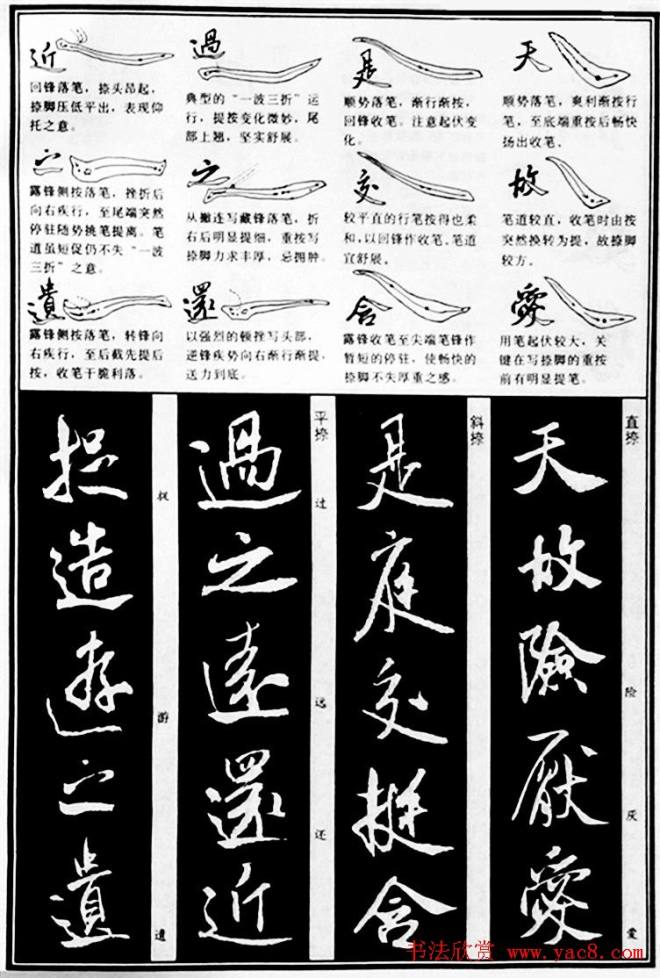 天
顺势落笔，爽利渐按行
笔，至底端重按后畅快
扬出收笔。
是
顺势落笔，渐行渐按，
回锋收笔。注意起伏变
化。
過
典型的“一波三折”运
行，提按变化微妙，尾
部上翘，坚实舒展。
近
回锋落笔，捺头昂起，
捺脚压低平出，表现仰
托之意。
故
笔道较直，收笔时由按
突然换转为提，故捺脚
较方。
交
较平直的行笔按得也柔
和，以回锋作收笔。笔道
宜舒展。
之
从撇连写藏锋落笔，折
右后明显提细，重按写
捺脚力求丰厚，忌拥肿。
之
露锋侧按落笔，挫折后
向右疾行，至尾端突然
停驻随势挑笔提离。笔
道虽短促仍不失“一波
三折”之意。
愛
用笔起伏较大，关
键在写捺脚的重按
前有明显提笔。
含
露锋收笔至尖端笔锋作
暂短的停驻，使畅快的
捺脚不失厚重之感。
還
以强烈的顿挫写头部，
逆锋疾势向右渐行渐提，
送力到底。
遺
露锋侧按落笔，转锋向
右疾行，至后截先提后
按，收笔干脆利落。
直捺
天故險厭愛
险
厌
爱
斜捺
是庭交挺含
平捺
過之遠還近
过
远
还
造遊之遺
游
遗
书法欣赏 www.yac8.com